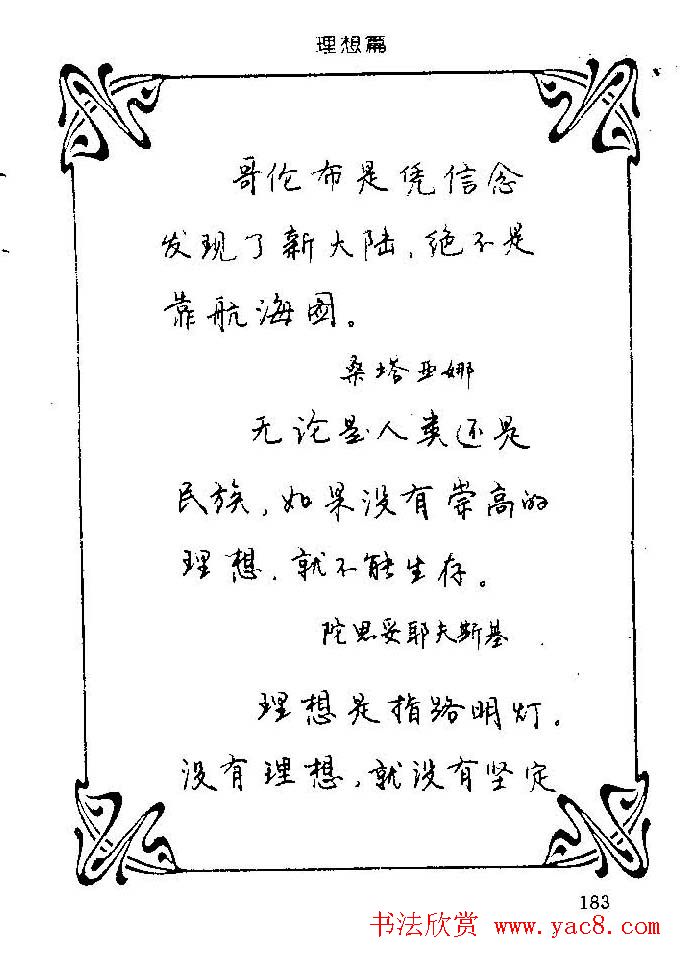 理想篇
哥伦布是凭信念
发现了新大陆,绝不是
靠航海图。
桑塔亚娜
无论是人类还是
民族,如果没有崇高的
理想,就不能生存。
陀思妥耶夫斯基
理想是指路明灯。
没有理想,就没有坚定
183
书法欣赏 www.yac8.com